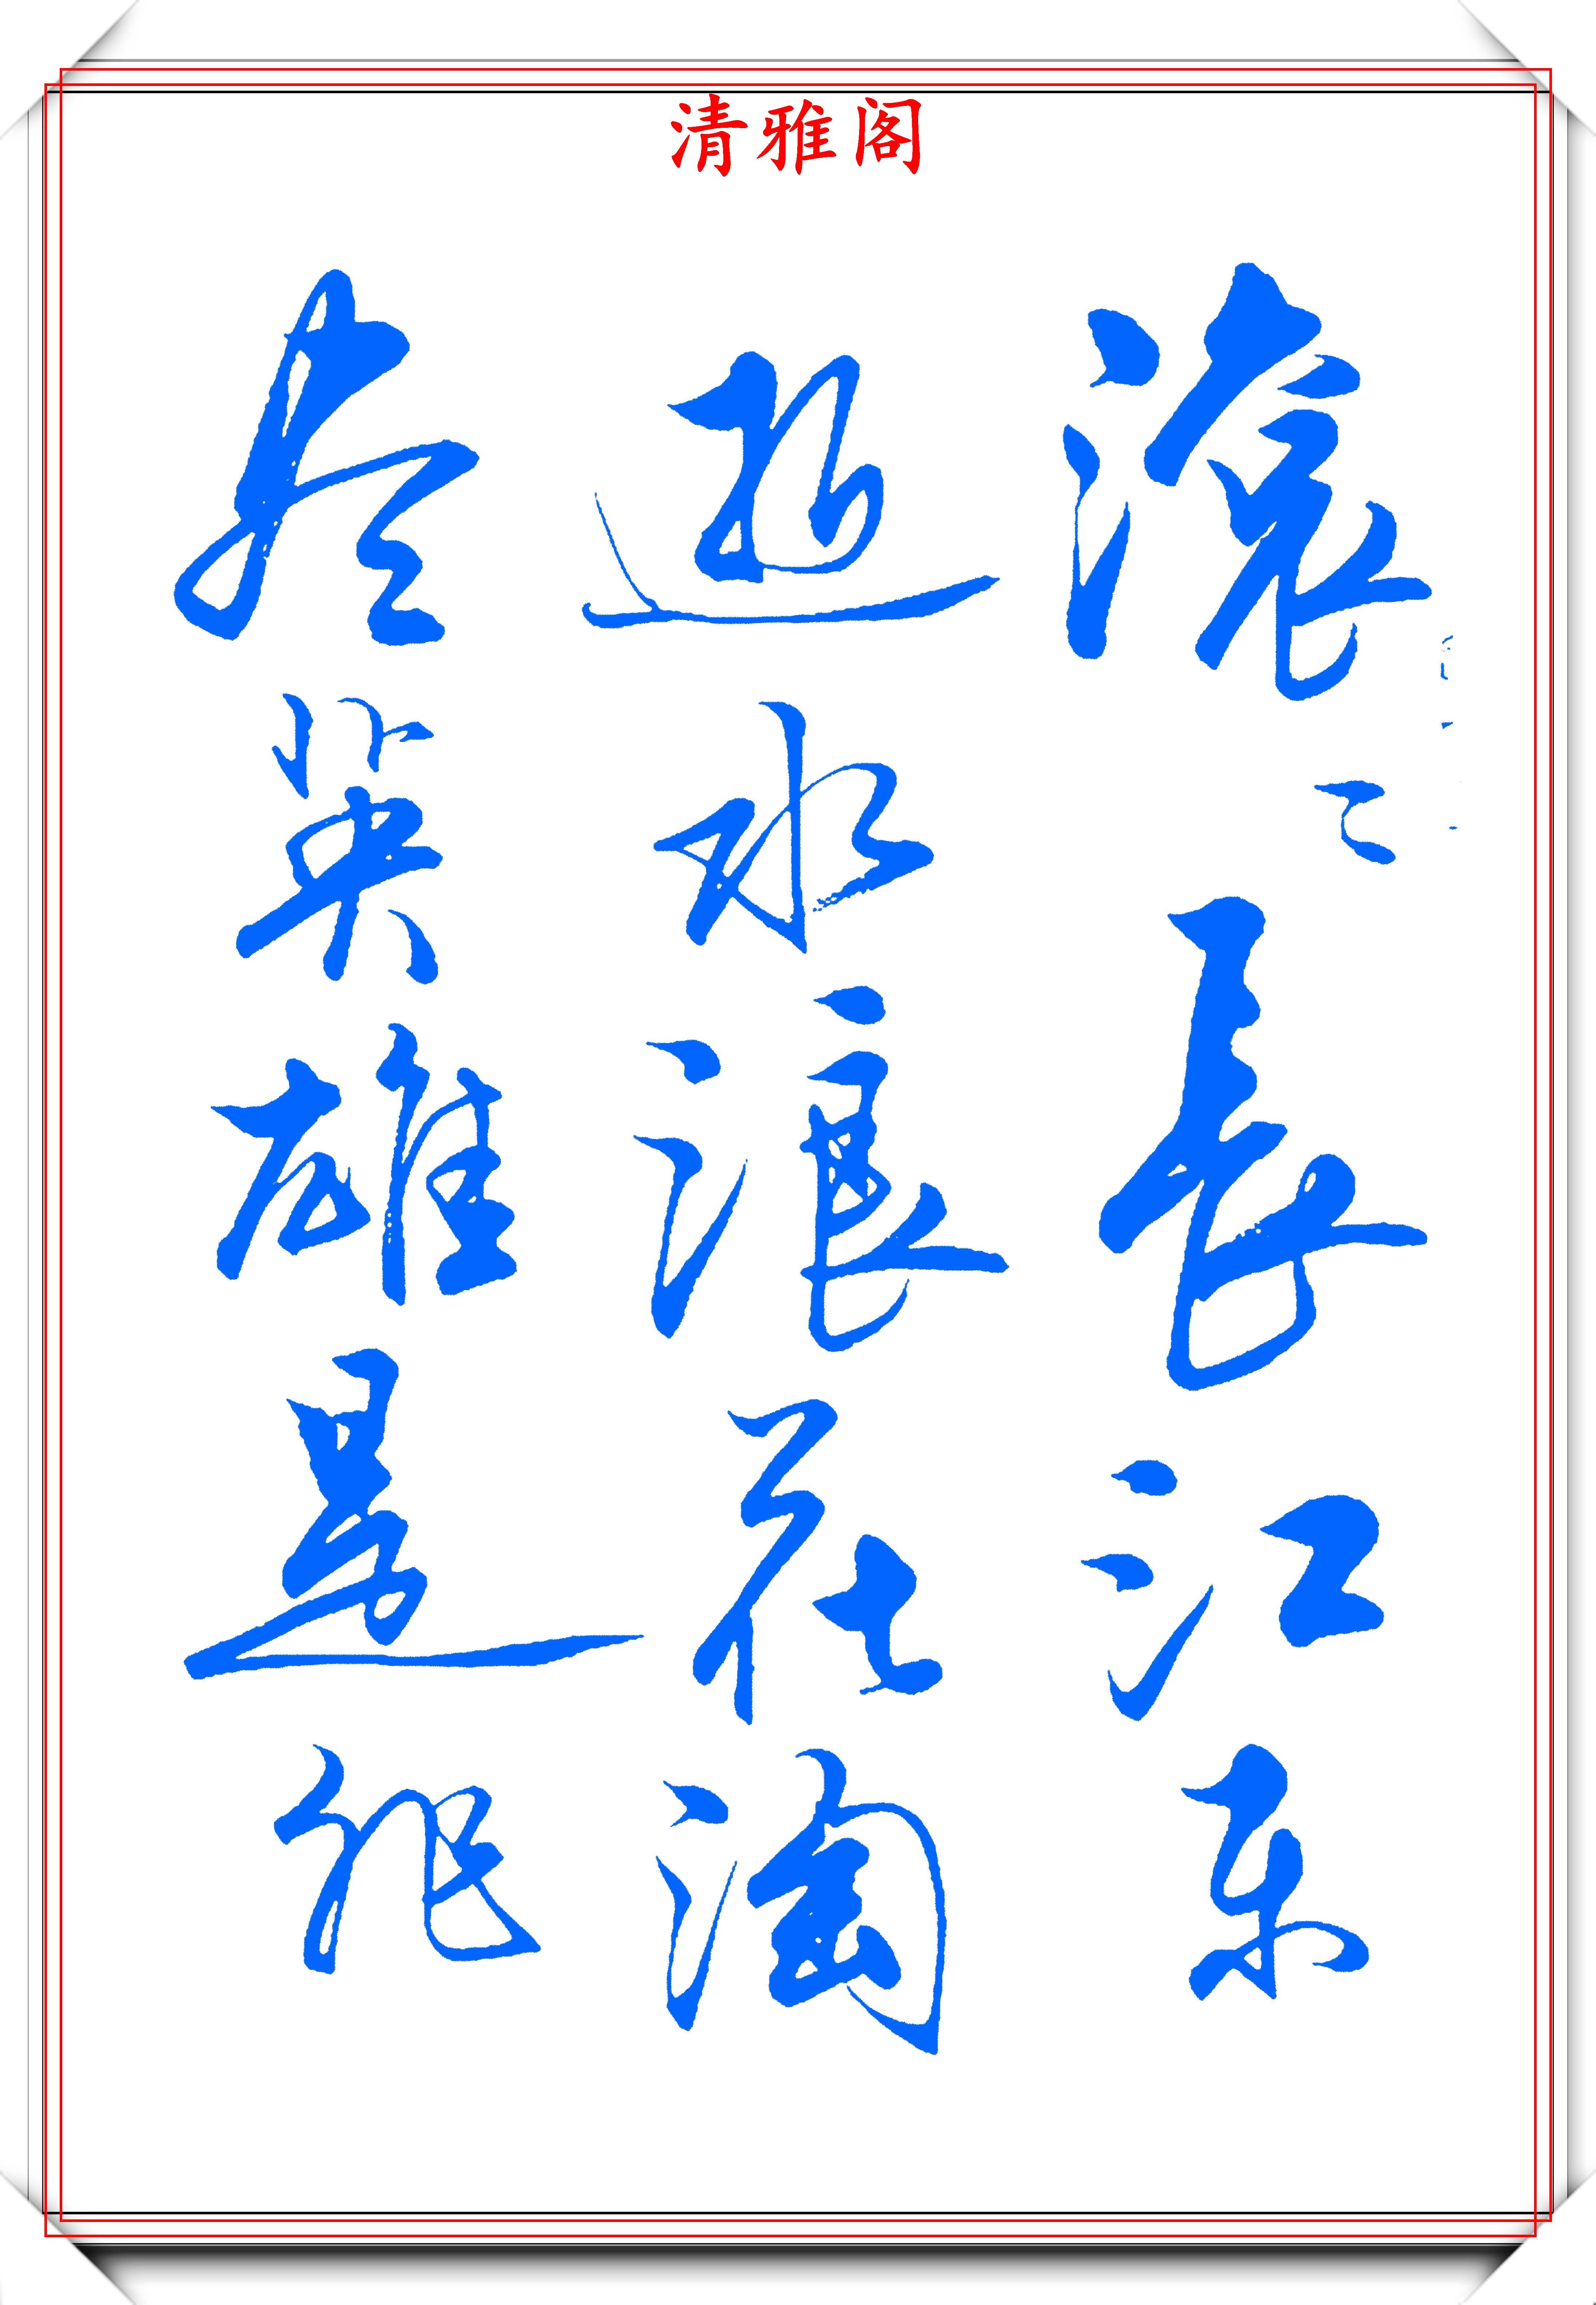 清雅阁
滚々长江东
逝水浪花淘
尽英雄是非